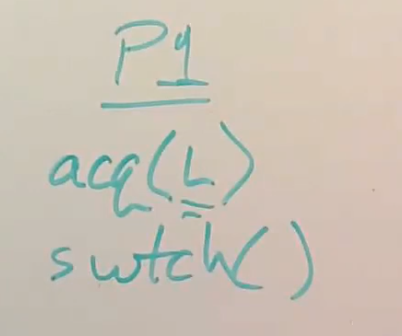 P1
acq(L)
swtch()